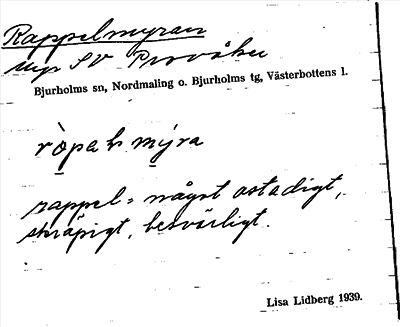 Rappelmyran
myr SV
Bjurholms sn, Nordmaling o. Bjurholms tg, Västerbottens l.
rappel = något ostadigt,
skräpigt, besvärligt.
Lisa Lidberg 1939.